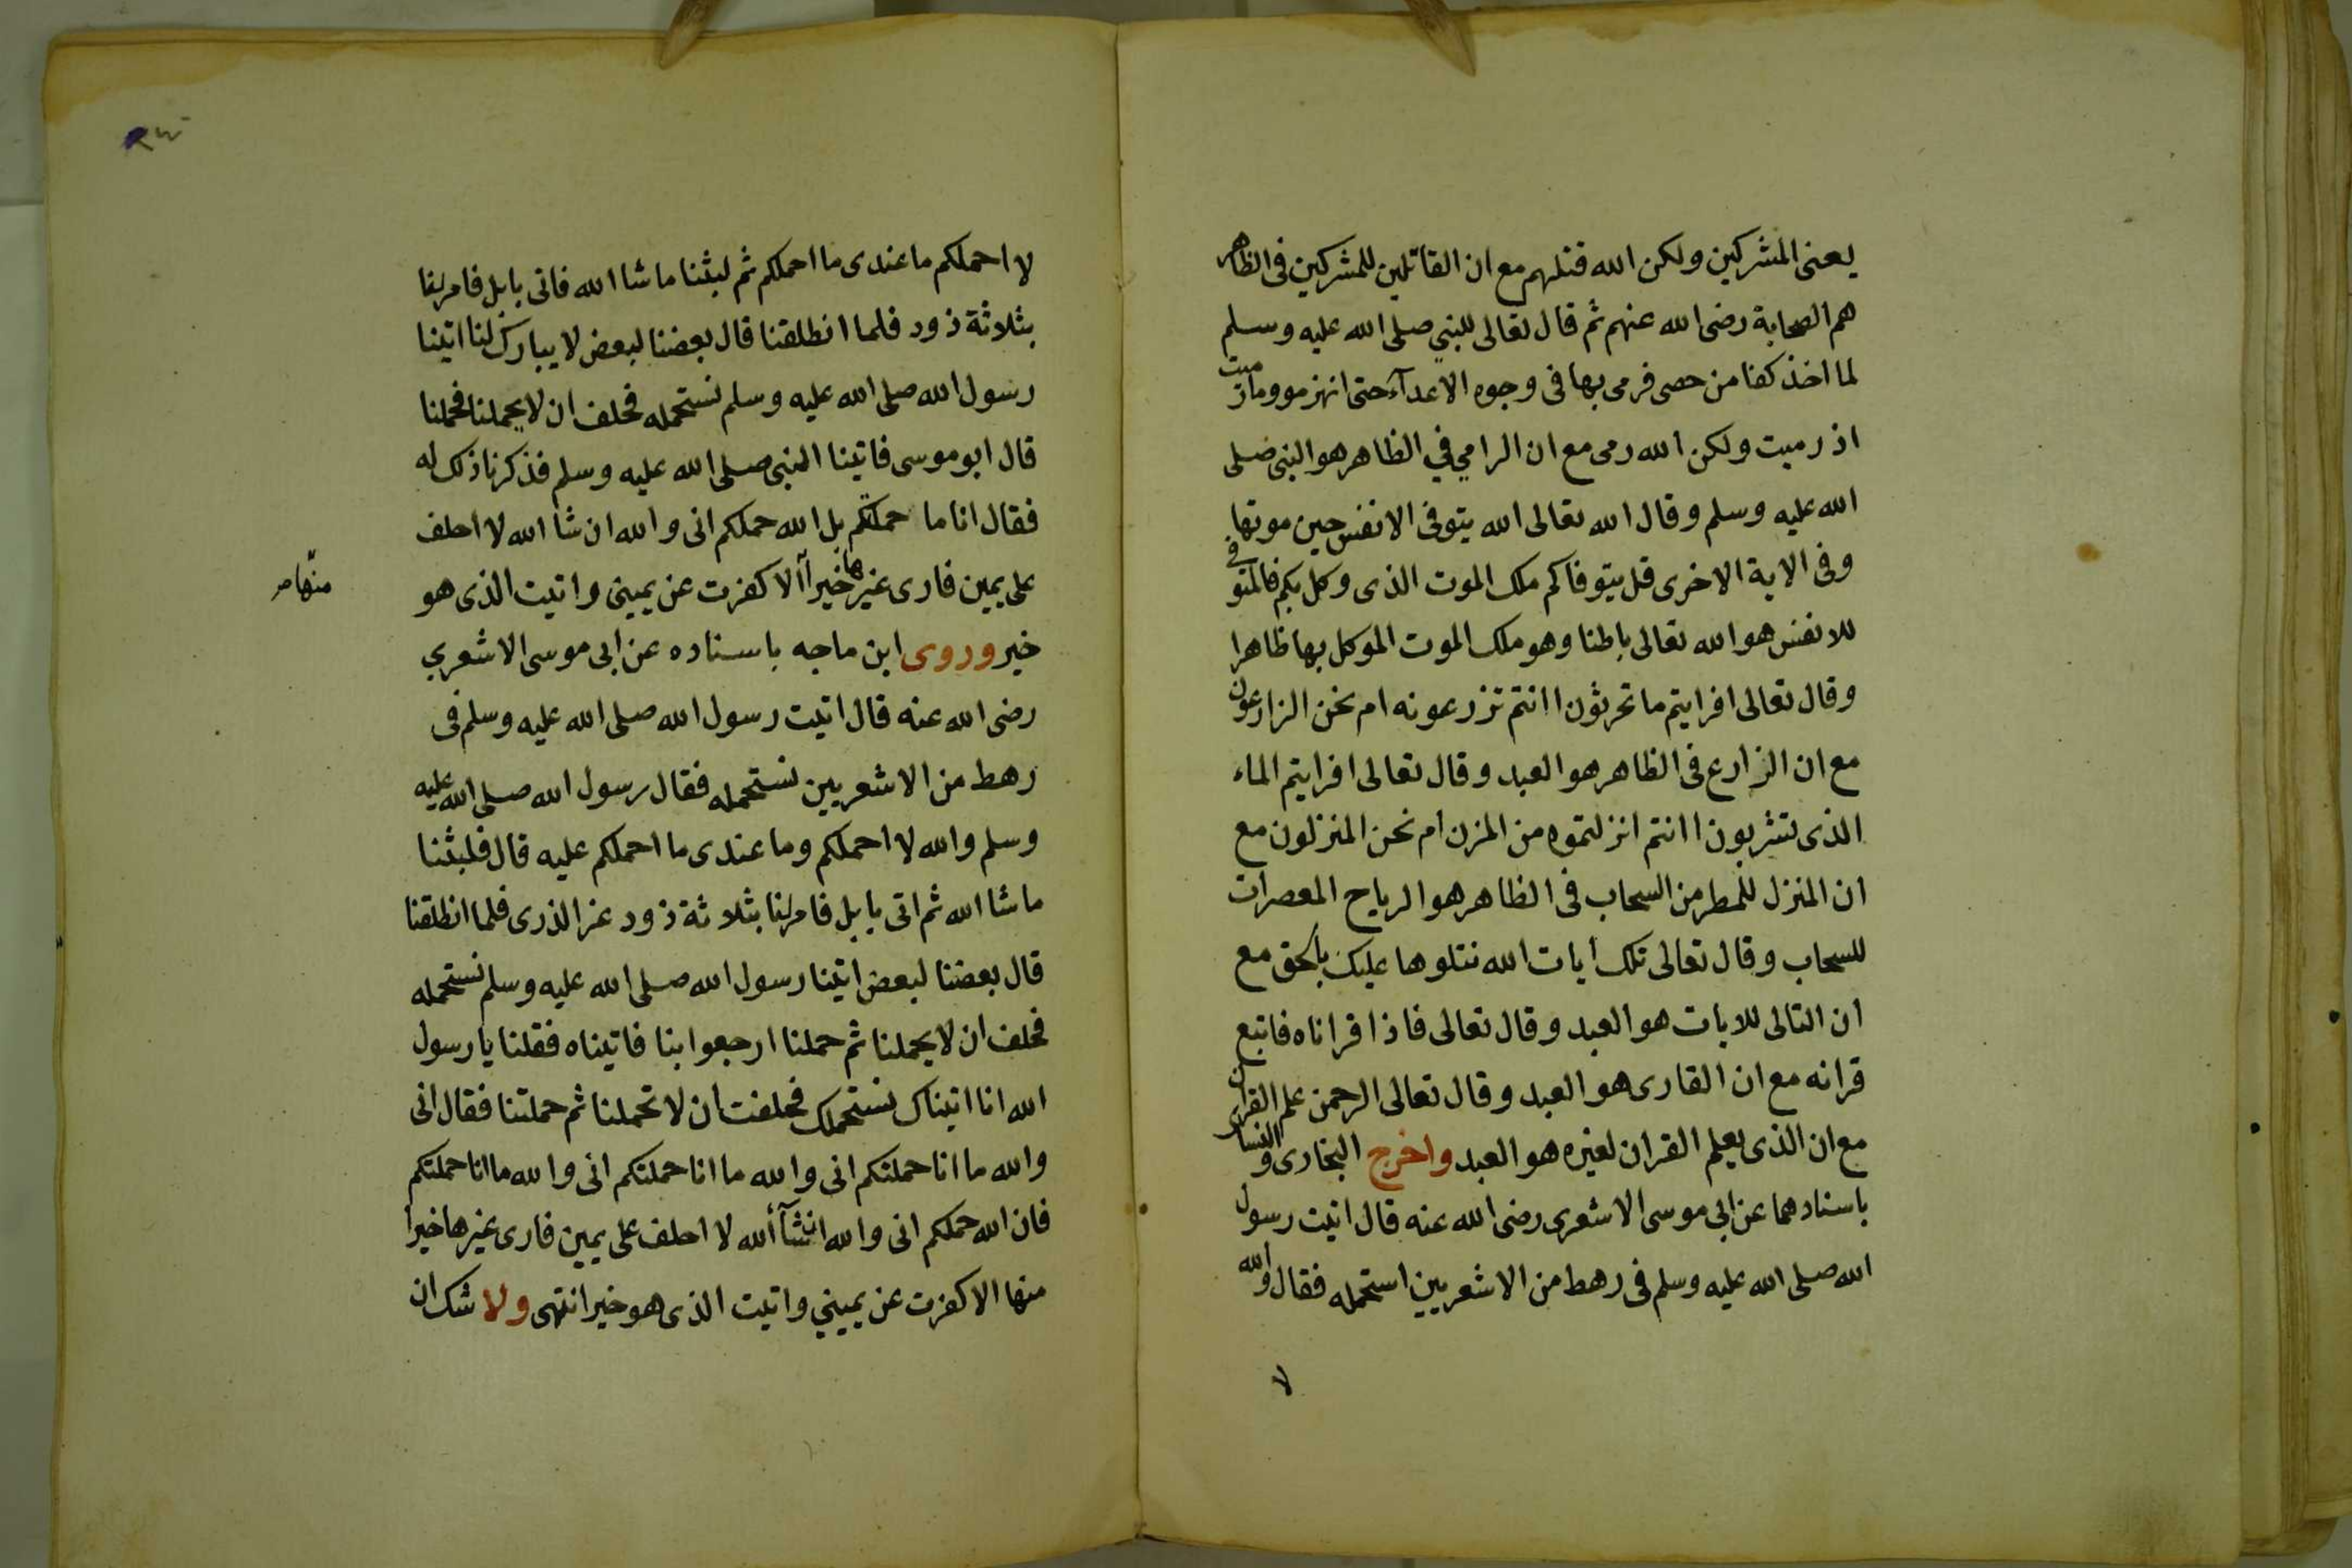 يعنى المشركين ولكن الله قتلهم مع ان القاتلين للمشركين فى الظاهر
هم الصحابة رضى الله عنهم ثم قال تعالى للنبي صلى الله عليه وسلم
لما اخذ كفا من حصى فرمى بها فى وجوه الاعدآء حتى انهزموا وما رميت
اذ رميت ولكن الله رمى مع ان الرامي في الظاهر هو النبى صلى
الله عليه وسلم وقال الله تعالى الله يتوفى الانفس حين موتها
وفى الاية الاخرى قل يتوفاكم ملك الموت الذى وكل بكم فالمتوفى
للانفس هو الله تعالى باطنا وهو ملك الموت الموكل بها ظاهرا
وقال تعالى افرايتم ما تحرثون اانتم تزرعونه ام نحن الزارعون
مع ان الزارع فى الظاهر هو العبد وقال تعالى افرايتم الماء
الذى تشربون اانتم انزلتموه من المزن ام نحن المنزلون مع
ان المنزل للمطر من السحاب فى الظاهر هو الرياح المعصرات
للسحاب وقال تعالى تلك أيات الله نتلوها عليك بالحق مع
ان التالى للايات هو العبد وقال تعالى فاذا قراناه فاتبع
قرانه مع ان القارى هو العبد وقال تعالى الرحمن علم القران
مع ان الذى يعلم القران لغيره هو العبد واخرج البخارى والنساى
باسنادهما عن ابي موسى الاشعرى رضى الله عنه قال اتيت رسول
الله صلى الله عليه وسلم فى رهط من الاشعريين استحمله فقال والله
لا
لا احملكم ما عندى ما احملكم ثم لبثنا ما شا الله فاتى بابل فامر لنا
بثلاثة ذود فلما انطلقنا قال بعضنا لبعض لا يبارك لنا اتينا
رسول الله صلى الله عليه وسلم نستحمله فحلف ان لا يحملنا فحملنا
قال ابو موسى فاتينا النبى صلى الله عليه وسلم فذكرنا ذلك له
فقال انا ما حملتكم بل الله حملكم انى والله ان شا الله لا احلف
على يمين فارى غيرها خيرا الا كفرت عن يمينى واتيت الذى هو
منها صح
خير وروى ابن ماجه باسناده عن ابى موسى الاشعري
رضى الله عنه قال اتيت رسول الله صلى الله عليه وسلم فى
رهط من الاشعريين نستحمله فقال رسول الله صلى الله عليه
وسلم والله لا احملكم وما عندى ما احملكم عليه قال فلبثنا
ما شا الله ثم اتى بابل فامر لنا بثلاثة ذود غر الذرى فلما انطلقنا
قال بعضنا لبعض اتينا رسول الله صلى الله عليه وسلم نستحمله
فحلف ان لا يحملنا ثم حملنا ارجعوا بنا فاتيناه فقلنا يا رسول
الله انا اتيناك نستحملك فحلفت ان لا تحملنا ثم حملتنا فقال انى
والله ما انا حملتكم انى والله ما انا حملتكم انى والله ما انا حملتكم
فان الله حملكم انى والله انشآ ألله لا احلف على يمين فارى غيرها خيرا
منها الا كفرت عن يميني واتيت الذى هو خير انتهى ولا شك ان